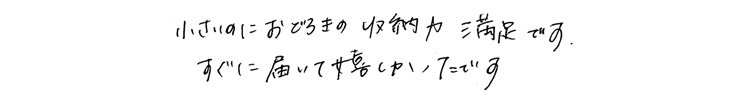 小さいのにおどろきの収納力 満足です.
すぐに届いて嬉しかったです